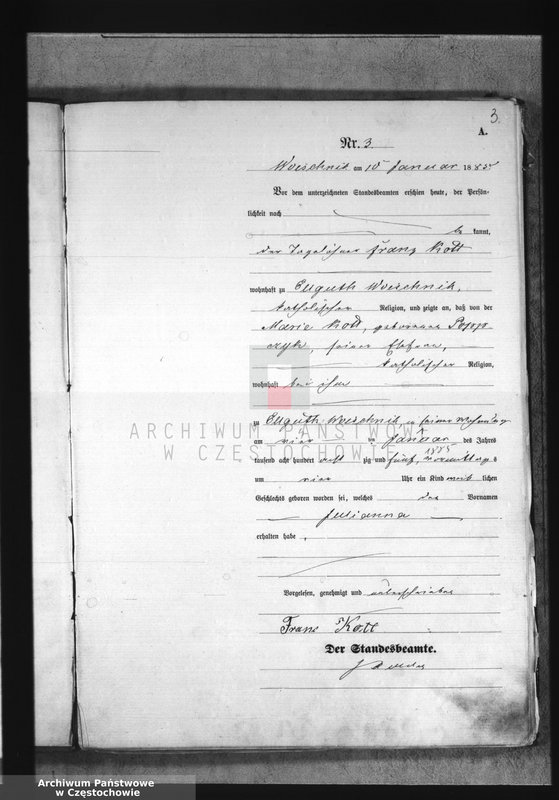 3.
A.
Nr. 3.
Woischnik am 10 Januar 1885
Vor dem unterzeichneten Standesbeamten erschien heute, der Persön-
lichkeit nach
be kannt,
der Tagelöhner Franz Kott
wohnhaft zu Ellguth Woischnik,
katholischer Religion, und zeigte an, daß von der
Marie Kott, geborenen
seiner Ehefrau,
katholischer Religion,
wohnhaft bei ihm
zu Ellguth Woischnik in seiner Wohnung
ARCHIWUM PAŃSTWOWE
W CZĘSTOCHOWIE
am vier ten Januar des Jahres
1885
tausend acht hundert acht zig und fünf, vormittags
um vier Uhr ein Kind weib lichen
Geschlechts geboren worden sei, welches den Vornamen
Julianna
erhalten habe.
Vorgelesen, genehmigt und unterschrieben
Franz Kott
Der Standesbeamte.
Archiwum Państwowe
w Częstochowie